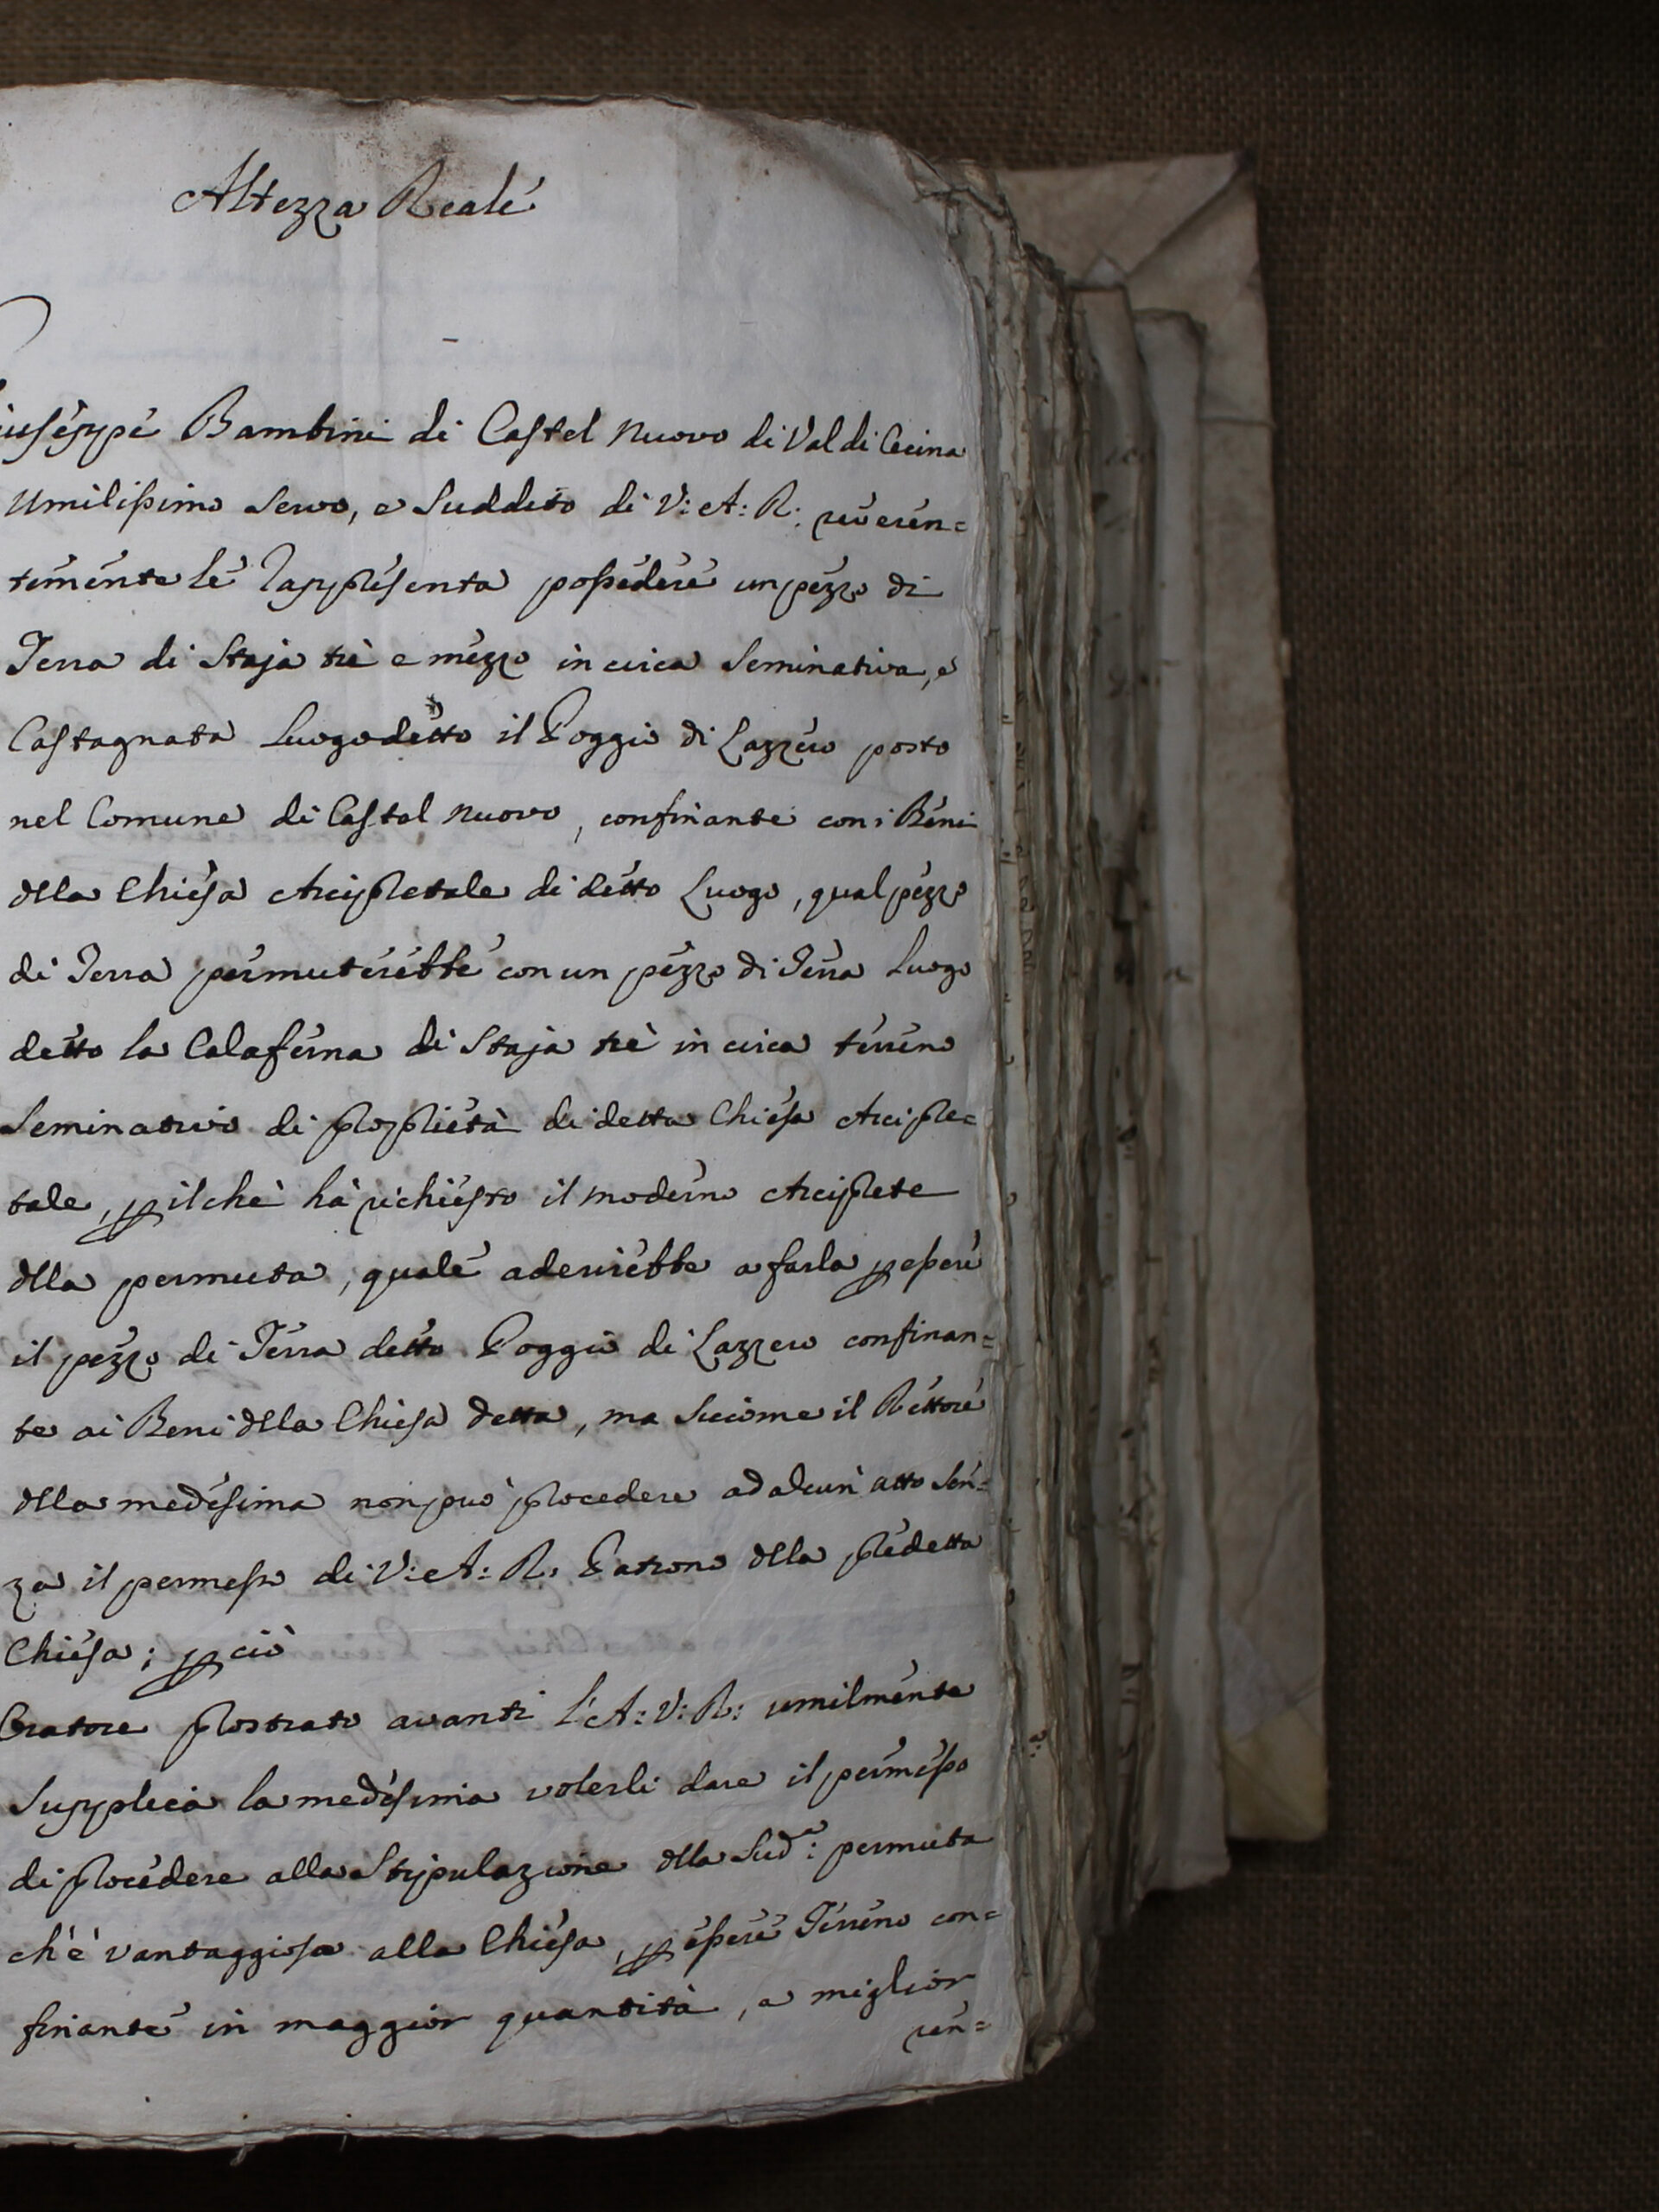 Altezza Reale
Giuseppe Bambini di Castel nuovo di Val di Cecina
Umilissimo Servo, e Suddito di V: A: R: reveren=
temente le rappresenta possedere un pezzo di
Terra di Staja trè e mezzo in circa Seminativa, e
Castagnata Luogo detto il Poggio di Lazzero posto
nel Comune di Castel nuovo, confinante con i Beni
della Chiesa Arcipretale di detto Luogo, qual pezzo
di Terra permuterebbe con un pezzo di Terra Luogo
detto la Calaferna di Staja trè in circa terreno
Seminativo di proprietà di detta Chiesa Arcipre=
tale, p il che hà richiesto il moderno Arciprete
della permuta, quale aderirebbe a farla p essere
il pezzo di Terra detto Poggio di Lazzero confinan=
te ai Beni della Chiesa detta, ma siccome il Rettore
della medesima non può procedere ad alcun atto Sen=
za il permesso di V: A: R: Patrono della predetta
Chiesa; p ciò
Oratore prostrato avanti l'A: V: R: umilmente
Supplica la medesima volerli dare il permesso
di procedere alla Stipulazione della Sudᵃ: permuta
ch'è vantaggiosa alla Chiesa, p essere Terreno con=
finante in maggior quantità, e miglior
ren=